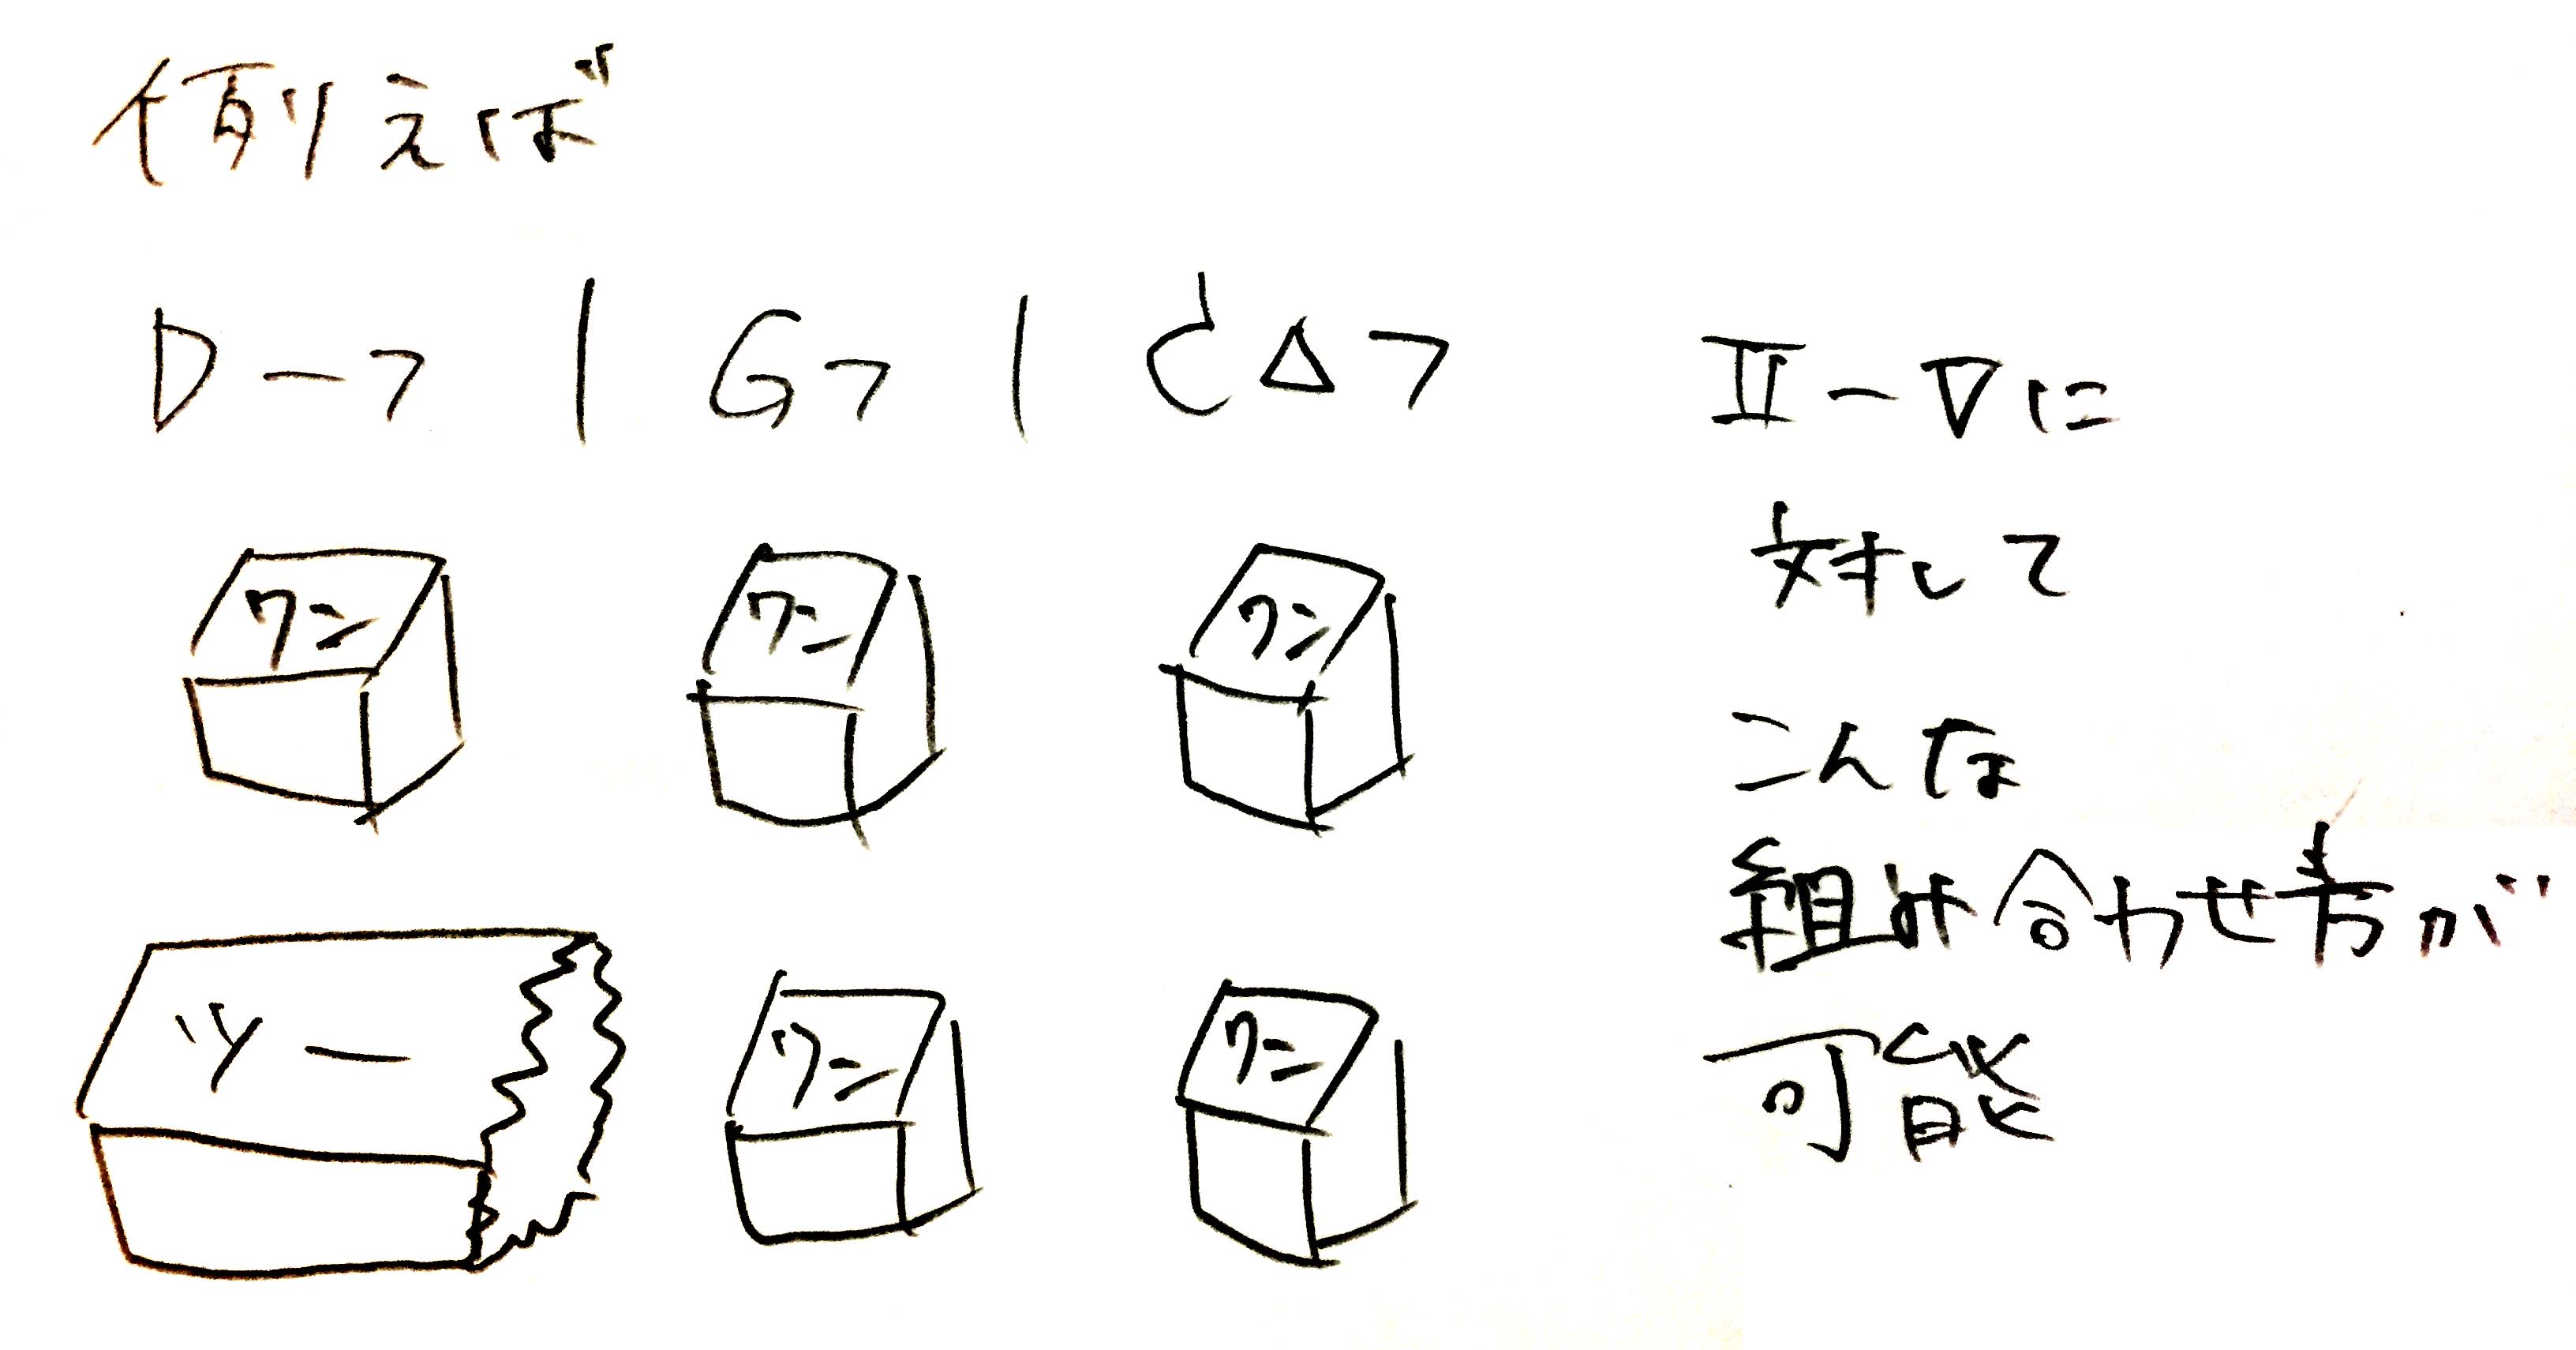 例えば
D－7 | G7 | C△7
Ⅱ－Ⅴに
対して
こんな
組み合わせ方が
可能
ワン ワン ワン
ツー ワン ワン